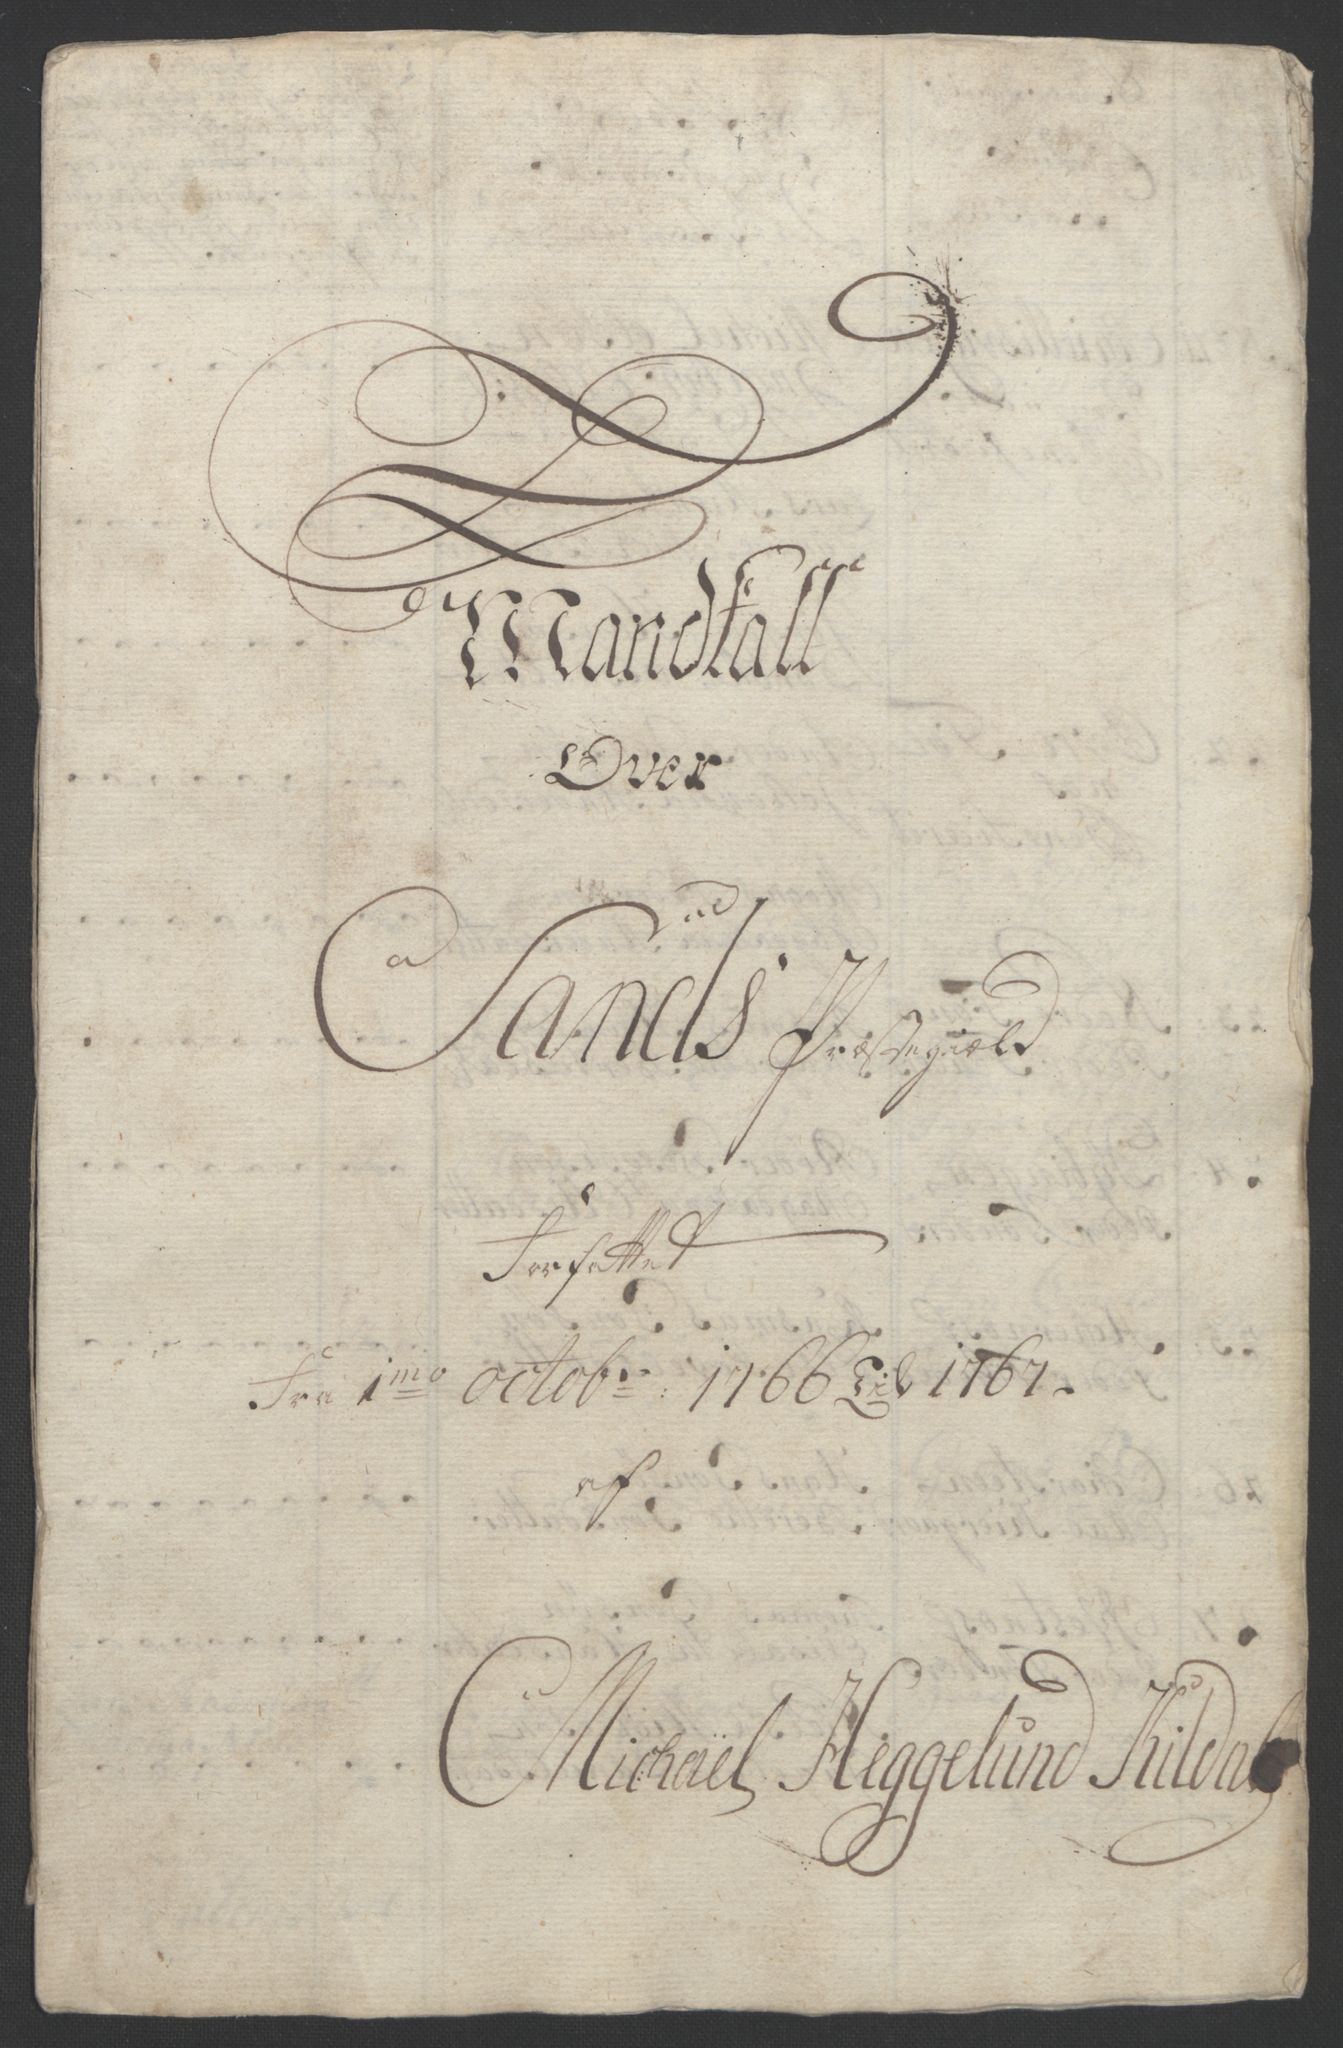 Mandtall
Over
Sands Præstegiæld
Forfattet
Fra 1mo octobr: 1766 Til 1767.
af
Michaël Heggelund Kildal